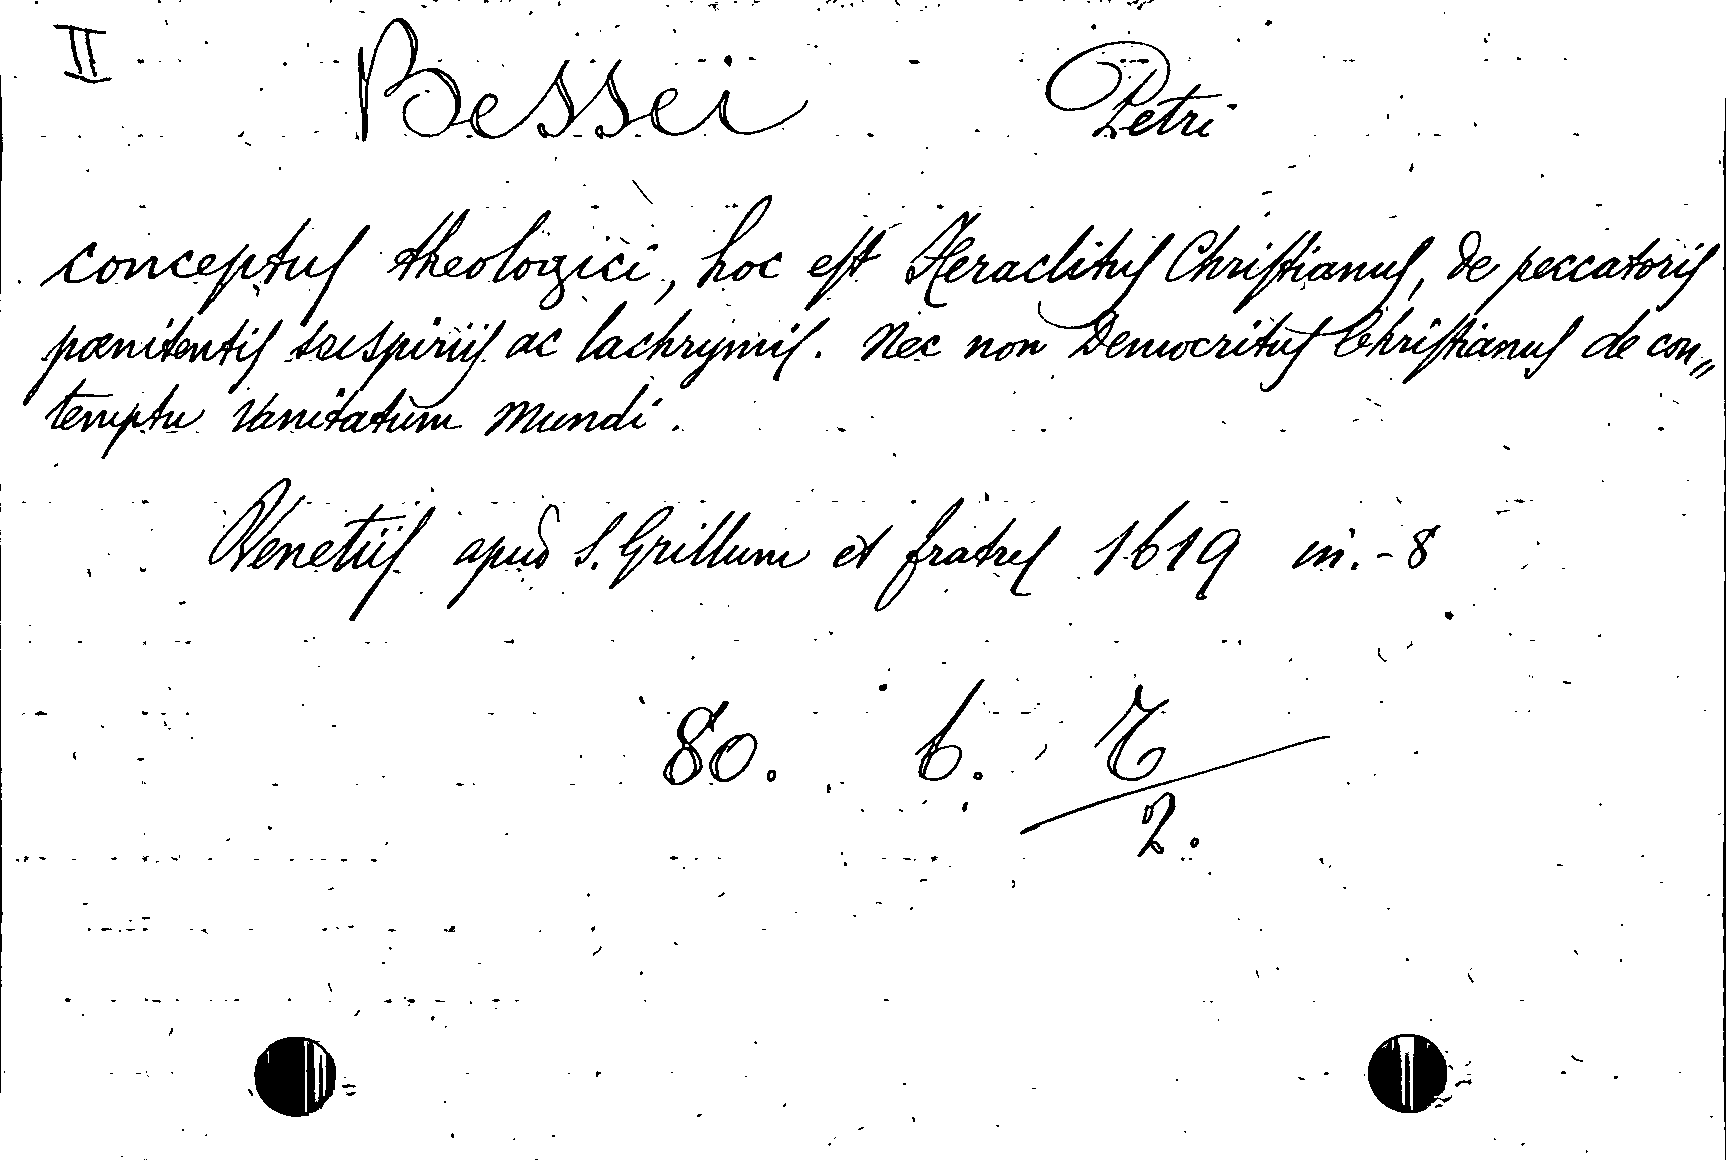 II Bessei Petri
conceptus theologici, hoc est Heraclitus Christianus, de peccatoris
pœnitentis suspiriis ac lachrymis. Nec non Democritus Christianus de con„
temptu vanitatum mundi.
Venetiis apud S. Grillum et fratres 1619 in.-8
80. 6. T
2.